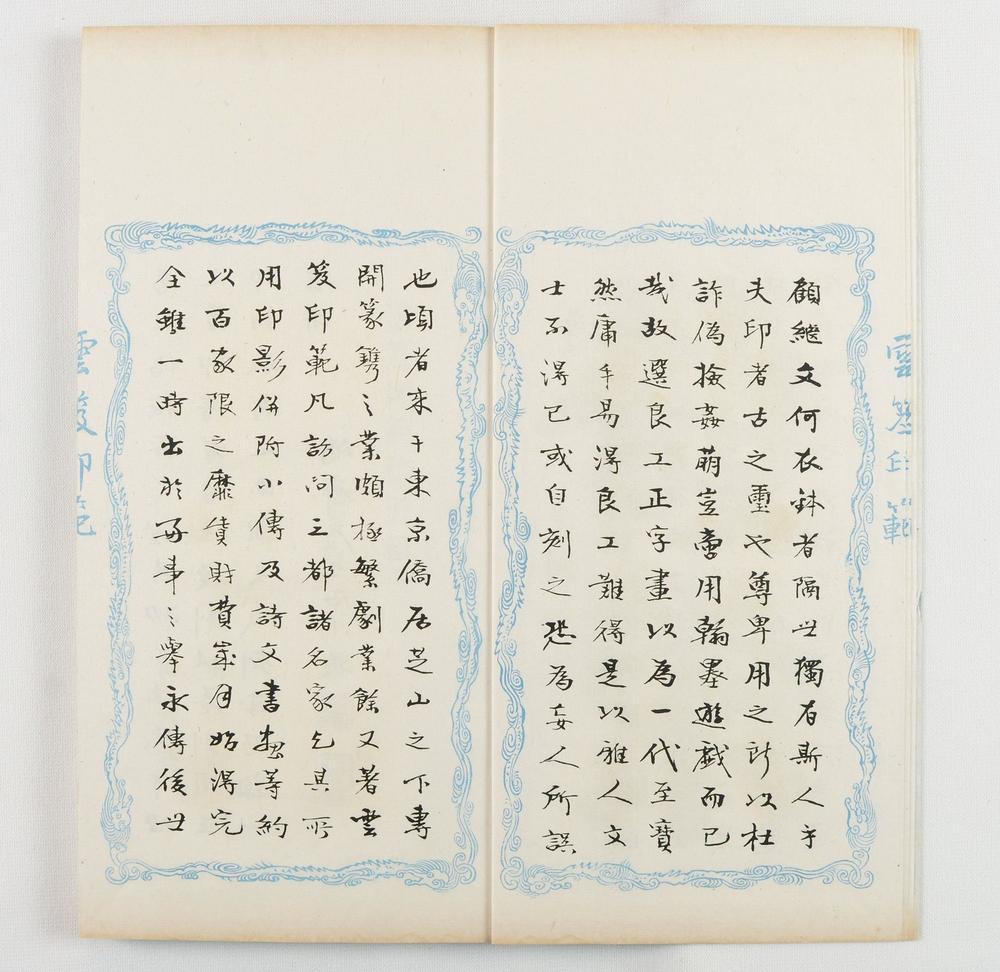 顧繼文何衣鉢者隔世獨有斯人乎
夫印者古之璽也尊卑用之所以杜
詐偽撿姦萌豈啻用翰墨遊戯而已
哉故選良工正字畫以為一代至寶
然庸手易得良工難得是以雅人文
士不得已或自刻之恐為妄人所誤
也頃者來于東京僑居芝山之下專
開篆鐫之業頗極繁劇業餘又著雲
笈印範凡訪問三都諸名家乞其所
用印影併附小傳及詩文書畫等約
以百家限之靡貨財費歲月始得完
全雖一時出於好事之擧永傳後世
雲笈印範
雲笈印範